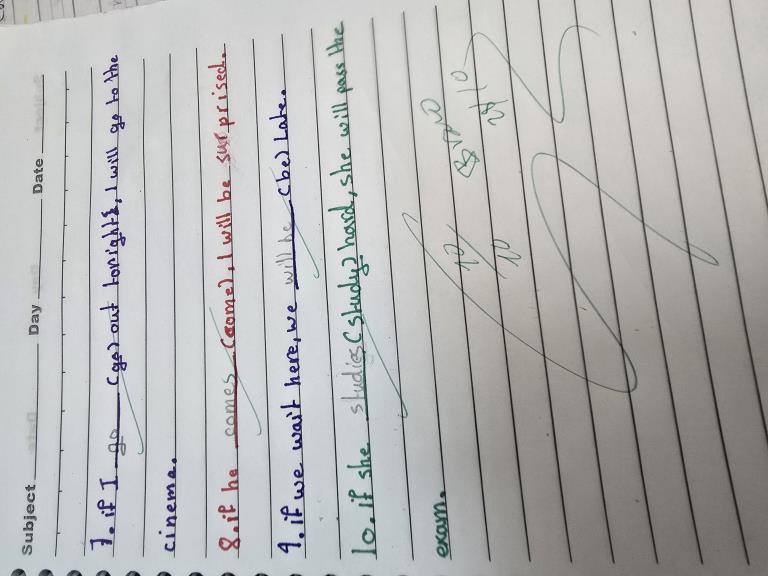 Subject Day Date
7. if I go (go) out tonight, I will go to the
cinema.
8. if he comes (come), I will be surprised.
9. if we wait here, we will be (be) late.
10. if she studies (study) hard, she will pass the
exam.
10/10